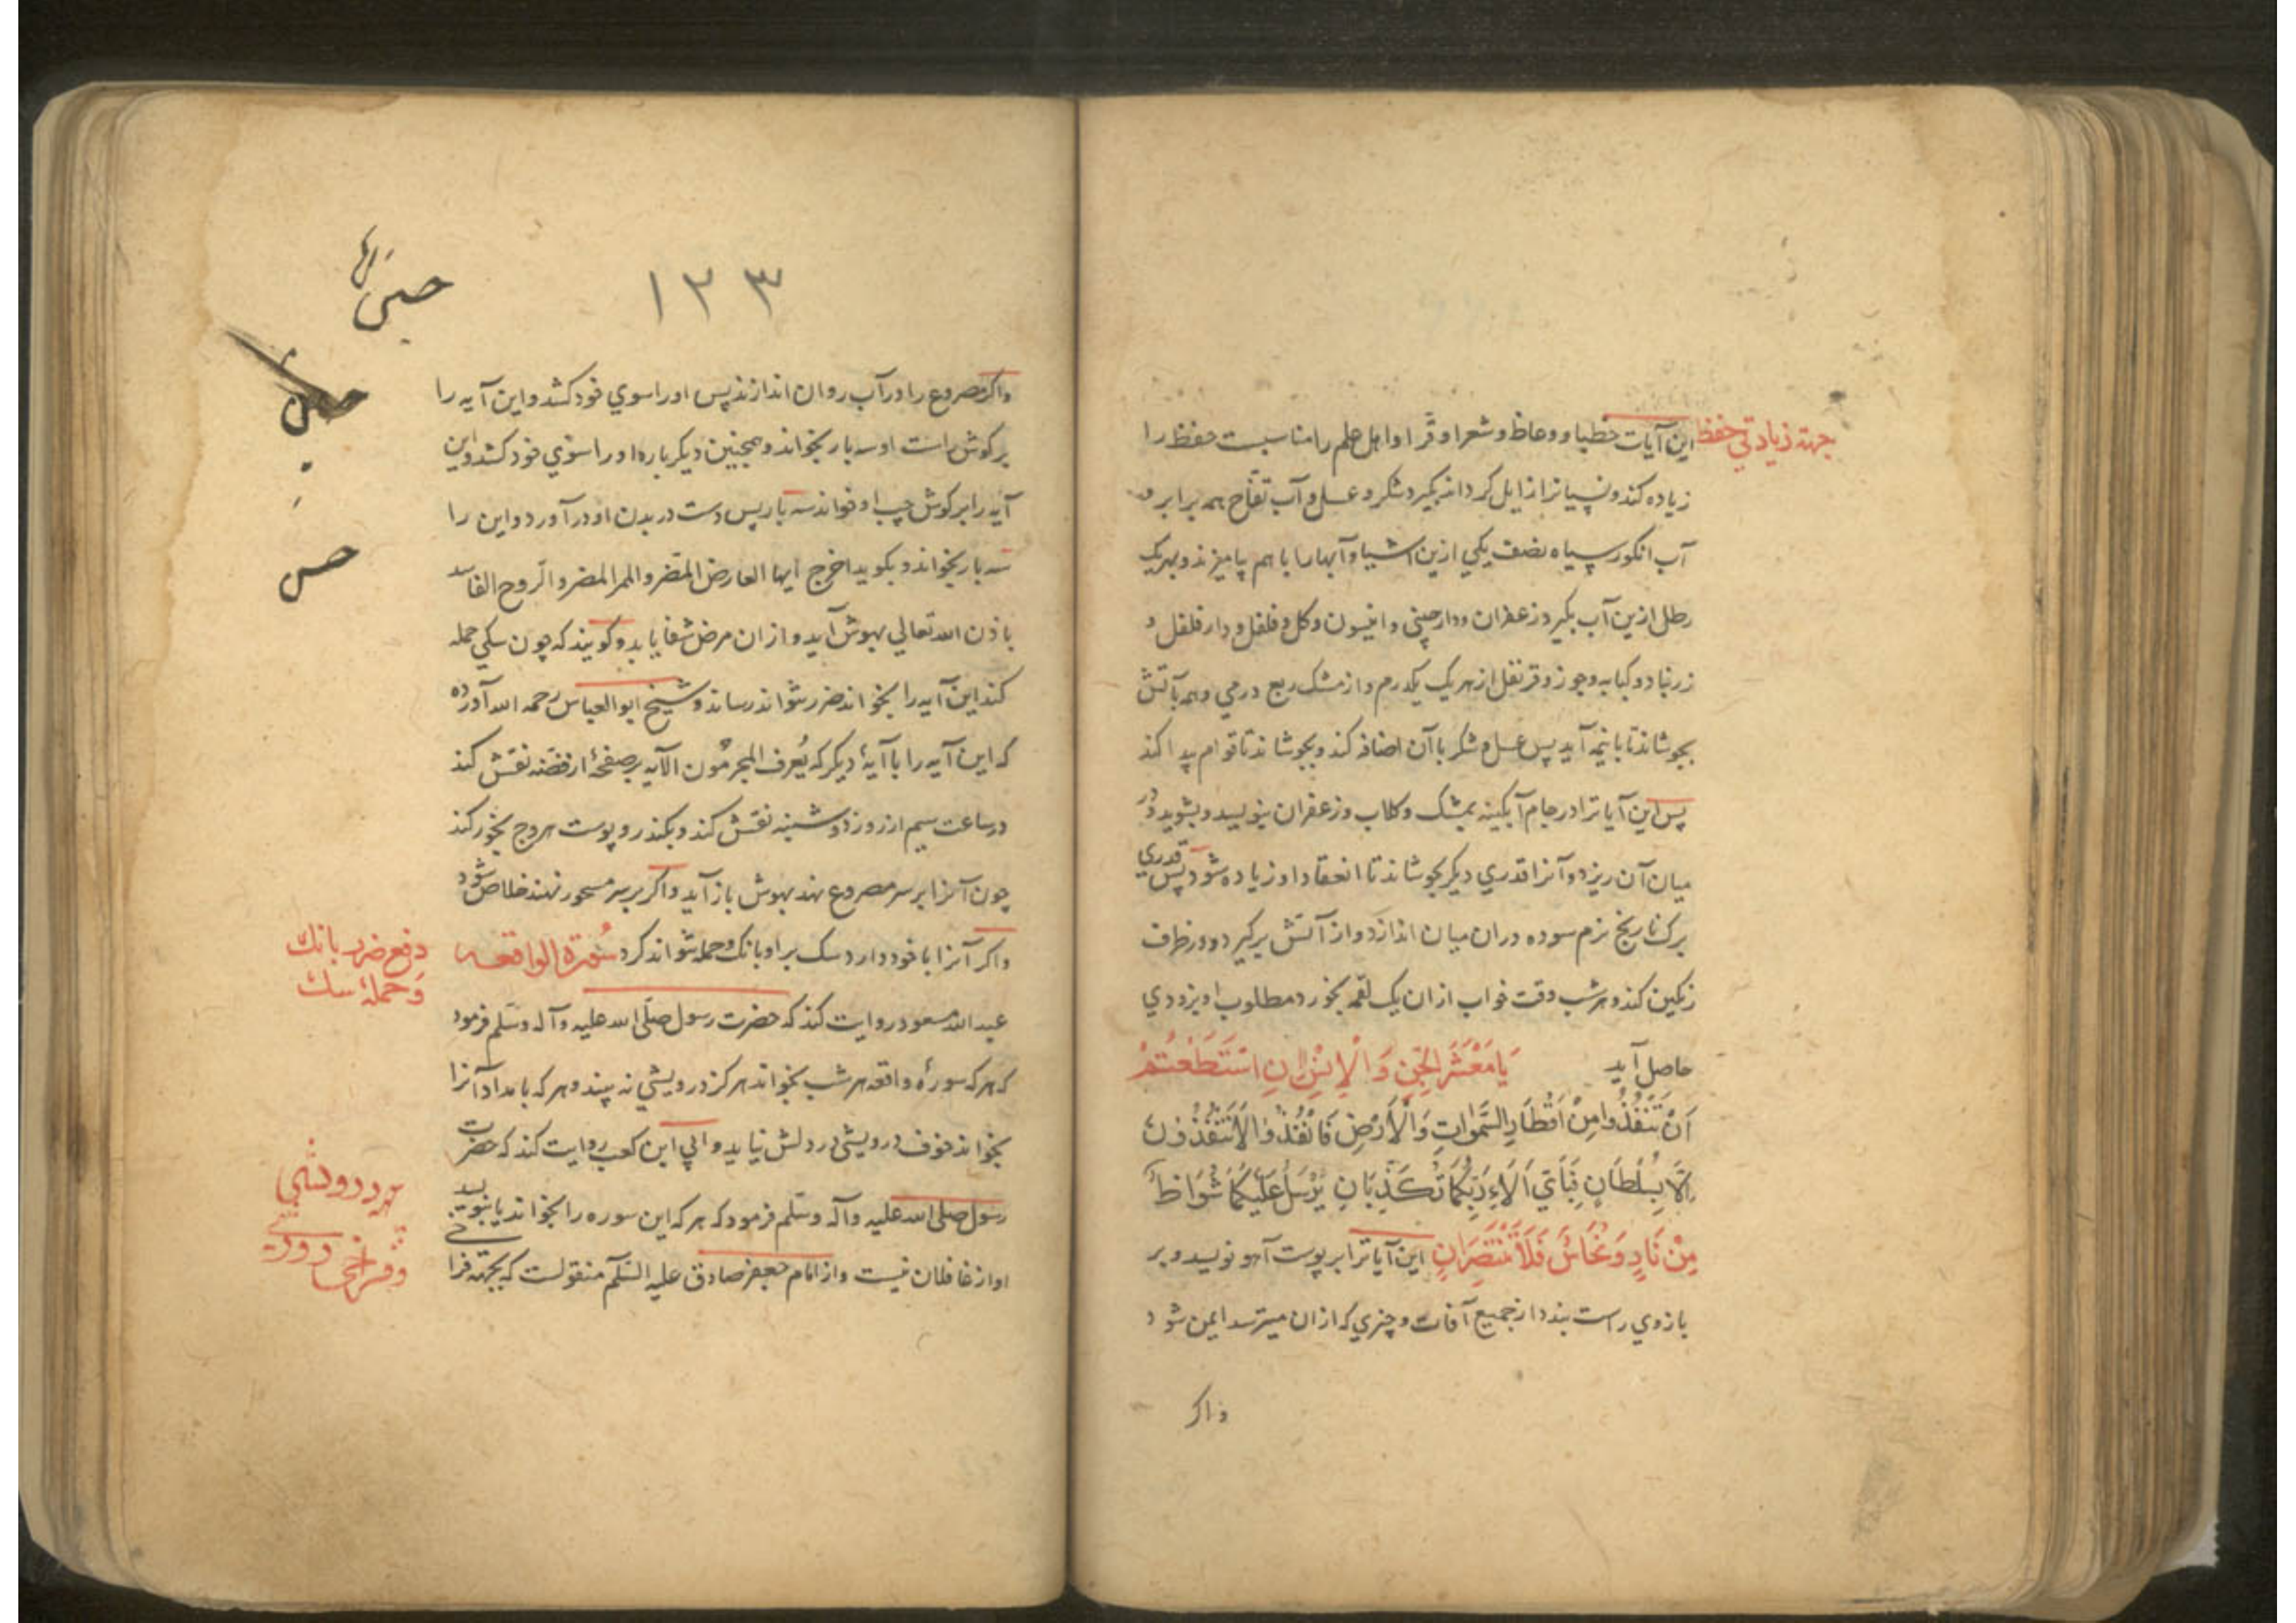 جهتهٔ زیادتی حفظ
این آیات خطبا و وعاظ و شعرا و قرا و اهل علم را مناسبست حفظ را
زیاده کند و نسیانرا زایل کرداند بکیرد شکر و عسل و آب تفّاح همه برابر و
آب انکور سیاه نصف یکی ازین اشیا و آبها را با هم بیامیزند و بهریک
رطل ازین آب بکیرد زعفران و دارچینی و انیسون و کل و فلفل و دارفلفل و
زرنباد و کبابه و جوز و قرنفل از هر یک یکدرم و از مشک ربع درمی و همه بآتش
بجوشاند تا بانیمه آید پس عسل و شکر با آن اضافه کند و بجوشاند تا قوام پیدا کند
پس این آیاترا در جام آبکینه بمشک و کلاب و زعفران بنویسد و بشوید و در
میان آن ریزد و آنرا قدری دیکر بجوشاند تا انعقاد او زیاده شود پس قدری
برک نارنج نرم سوده دران میان اندازد و از آتش برکیرد و در ظرف
زنکین کند و هر شب وقت خواب ازان یک لقمه بخورد مطلوب او بزودی
حاصل آید یَا مَعْشَرَ الْجِنِّ وَ الْاِنْسِ اِنِ اسْتَطَعْتُمْ
اَنْ تَنْفُذُوا مِنْ اَقْطَارِ السَّمٰوَاتِ وَالْاَرْضِ فَانْفُذُوا لَا تَنْفُذُونَ
اِلَّا بِسُلْطَانٍ فَبِاَیِّ اٰلَاءِ رَبِّکُمَا تُکَذِّبَانِ یُرْسَلُ عَلَیْکُمَا شُوَاظٌ
مِنْ نَارٍ وَنُحَاسٌ فَلَا تَنْتَصِرَانِ این آیاترا بر پوست آهو نویسد و بر
بازوی راست بندد از جمیع آفات و چیزی که ازان میترسد ایمن شود
واکر
۱۳۳
واکر مصروع را در آب روان اندازند پس او را سوی خود کشد و این آیه را
بر کوش راست او سه بار بخواند و همچنین دیکر باره او را سوی خود کشد و این
آیه را بر کوش چپ او خواند سه بار پس دست در بدن او درآورد و این را
سه بار بخواند و بکوید اخرج ایها العارض المضر والمر المضر و الروح الفاسد
باذن الله تعالی بهوش آید و ازان مرض شفا یابد و کویند که چون سکی حمله
کند این آیه را بخواند ضرر نتواند رساند و شیخ ابوالعباس رحمه الله آورده
که این آیه را با آیهٔ دیکر که یُعرف المجرمُون الآیه بر صفحهٔ از فضّه نقش کند
در ساعت سیم از روز دوشنبه نقش کند و بکندر و پوست سروج بخور کند
چون آنرا بر سر مصروع نهند بهوش باز آید واکر بر سر مسحور نهند خلاص شود
واکر آنرا با خود دارد سک بر او بانک و حمله نتواند کرد سُورة الواقعه
دفع ضرر بانک
و حملهٔ سک
عبدالله مسعود روایت کند که حضرت رسول صلّی الله علیه وآله وسلّم فرمود
که هرکه سورهٔ واقعه هر شب بخواند هرکز درویشی نه بیند و هرکه بامداد آنرا
بخواند خوف درویشی در دلش نیاید و ابی ابن کعب روایت کند که حضرت
رسول صلی الله علیه وآله وسلّم فرمود که هر که این سوره را بخواند یا بنویسد
او از غافلان نیست و از امام جعفر صادق علیه السّلام منقولست که بجهته فرا